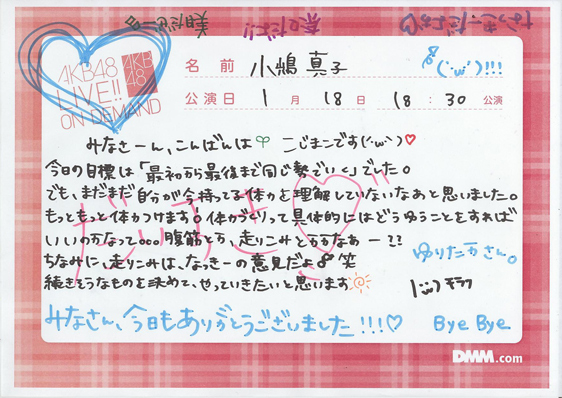 なっきーだよ♡
美月だぜ
AKB48
LIVE!!
ON DEMAND
AKB
48
名前 小嶋真子
(´·ω·`)!!!
公演日 1月18日 18:30公演
みなさーん、こんばんは こじまこです(´·ω·`)♡
今日の目標は「最初から最後まで同じ勢でいく」でした。
でも、まだまだ自分が今持ってる体力を理解していないなあと思いました。
もっともっと体力つけます!体力づくりって具体的にはどうゆうことをすれば
いいのかなって。。。腹筋とか、走りこみとかかなあー??
ちなみに、走りこみは、なっきーの意見だよ 笑
続きそうなものを決めて、やっていきたいと思います
だいすき♡
ゆりたかさん。
|·ω·) チラッ
みなさん、今日もありがとうございました!!!♡
Bye Bye
DMM.com